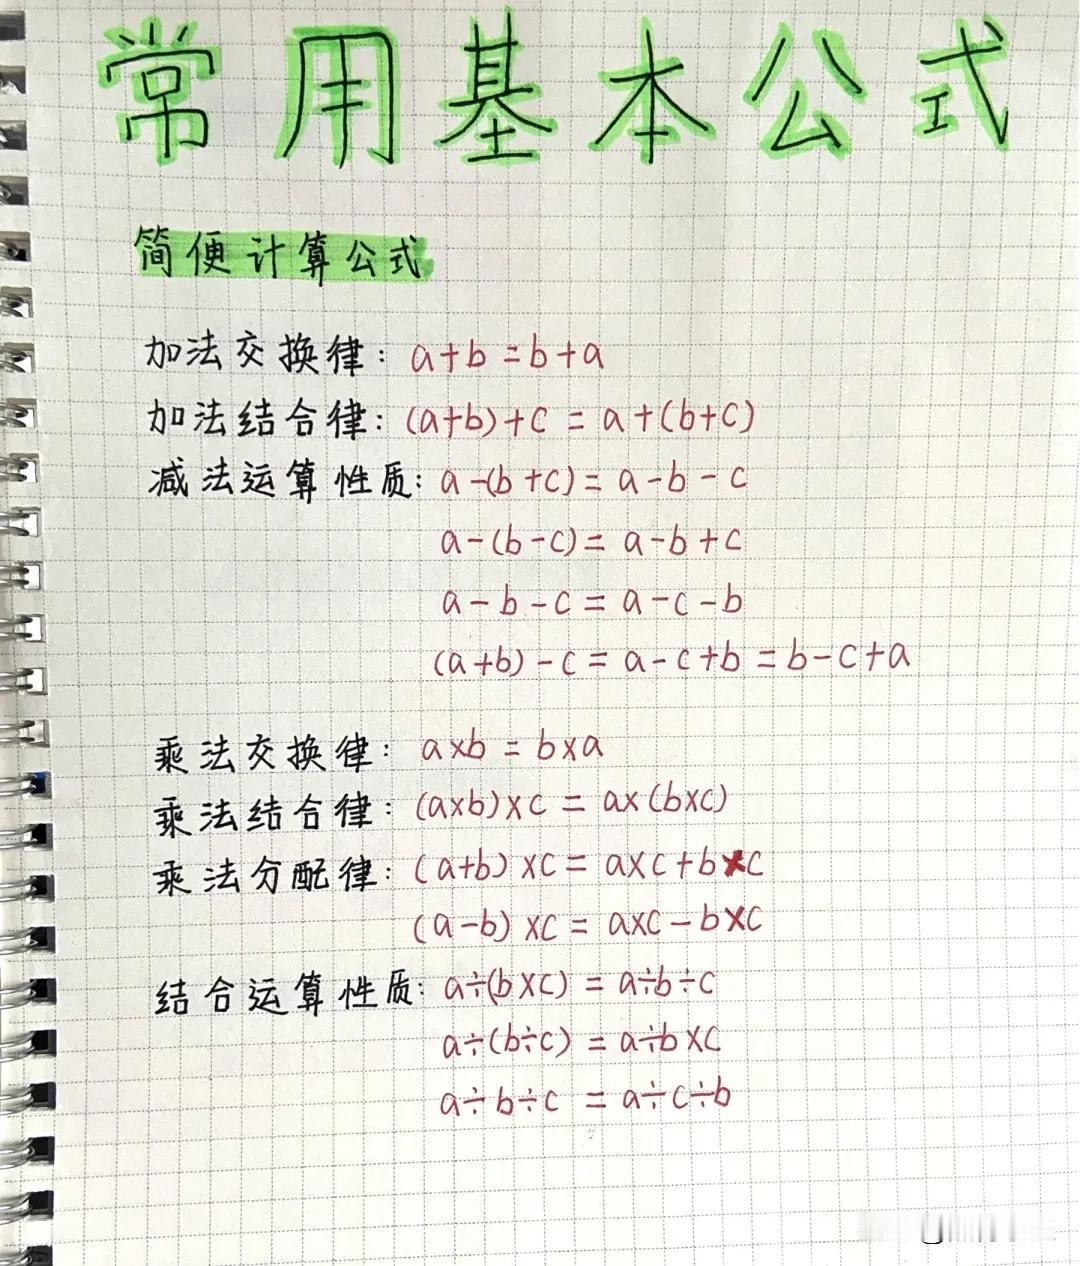 常用基本公式
简便计算公式
加法交换律: a+b=b+a
加法结合律: (a+b)+c = a+(b+c)
减法运算性质: a-(b+c)= a-b-c
a-(b-c)= a-b+c
a-b-c = a-c-b
(a+b)-c = a-c+b = b-c+a
乘法交换律: a×b = b×a
乘法结合律: (a×b)×c = a×(b×c)
乘法分配律: (a+b)×c = a×c+b×c
(a-b)×c = a×c-b×c
结合运算性质: a÷(b×c) = a÷b÷c
a÷(b÷c) = a÷b×c
a÷b÷c = a÷c÷b